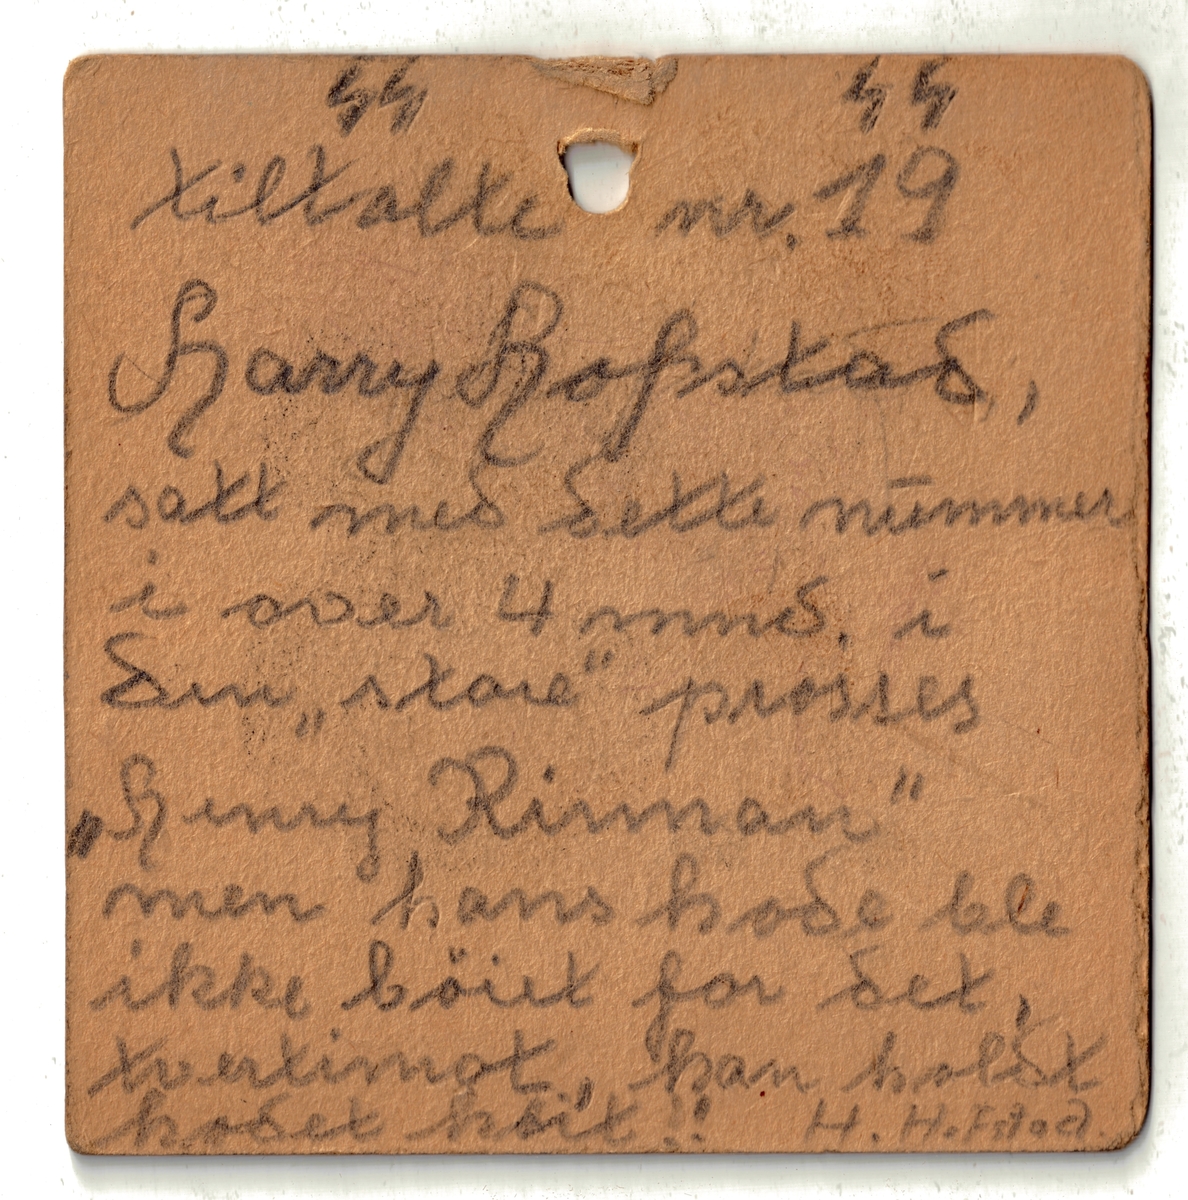 ϟϟ ϟϟ
tiltalte nr. 19
Harry Hofstad,
satt med dette nūmmer
i over 4 mnd. i
den „store" prosses
„Henry Rinnan"
men hans hode ble
ikke böiet for det,
tvertimot, han holdt
hodet höit!! H. Hofstad.